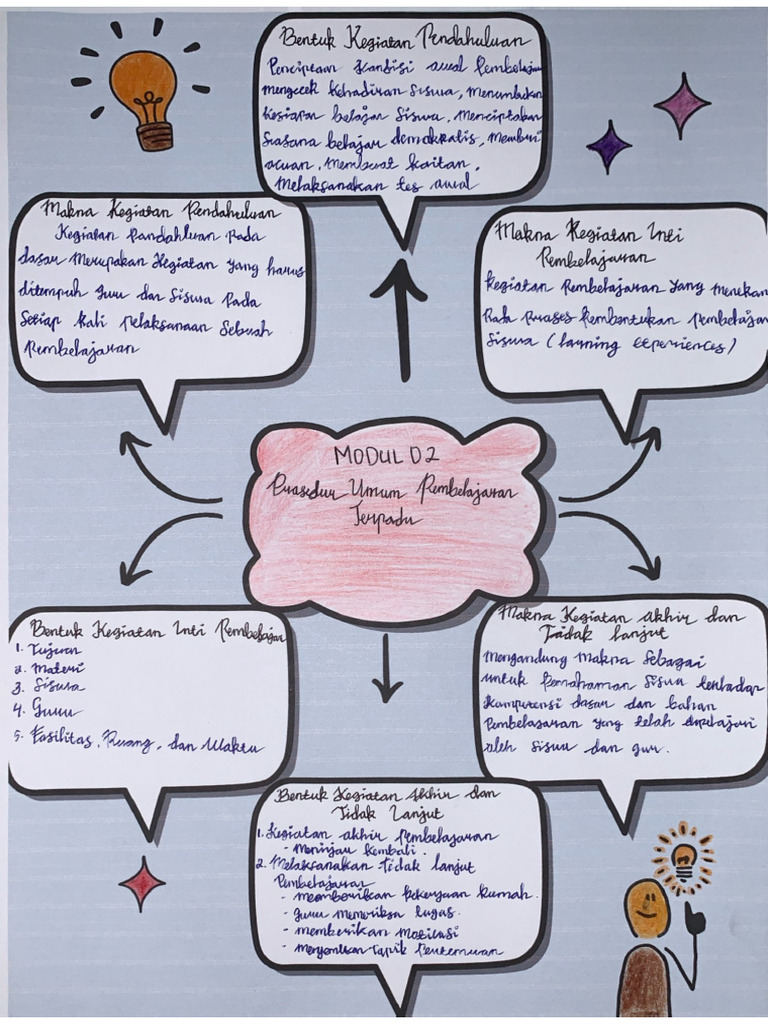 Bentuk Kegiatan Pendahuluan
Penciptaan kondisi awal Pembelajar
mengecek kehadiran siswa, menumbuhkan
kesiapan belajar siswa, menciptakan
suasana belajar demokratis, memberi
acuan, membuat kaitan,
Melaksanakan tes awal
Makna Kegiatan Pendahuluan
Kegiatan Pandahluan Pada
dasar Merupakan kegiatan yang harus
ditempuh guru dan Siswa Pada
Setiap kali pelaksanaan Sebuah
Pembelajaran
Makna Kegiatan Inti
Pembelajaran
Kegiatan Pembelajaran yang menekan
Pada proses Pembentukan Pembelajar
Siswa (larning experiences)
MODUL 02
Prosedur Umum Pembelajaran
Terpadu
Bentuk Kegiatan Inti Pembelajar
1. Tujuan
2. Materi
3. Siswa
4. Guru
5. Fasilitas, Ruang, dan Waktu
Makna Kegiatan akhir dan
Tidak lanjut
Mengandung Makna Sebagai
untuk Pemahaman Siswa terhadap
kompetensi dasar dan bahan
Pembelajaran yang telah dipelajari
oleh siswa dan gur.
Bentuk Kegiatan Akhir dan
Tidak Lanjut
1. Kegiatan akhir Pembelajaran
- Meninjau kembali.
2. Melaksanakan Tidak lanjut
Pembelajaran
- memberikan Pekerjaan Rumah.
- guru memeriksa tugas.
- memberikan motivasi
- Topik Pertemuan